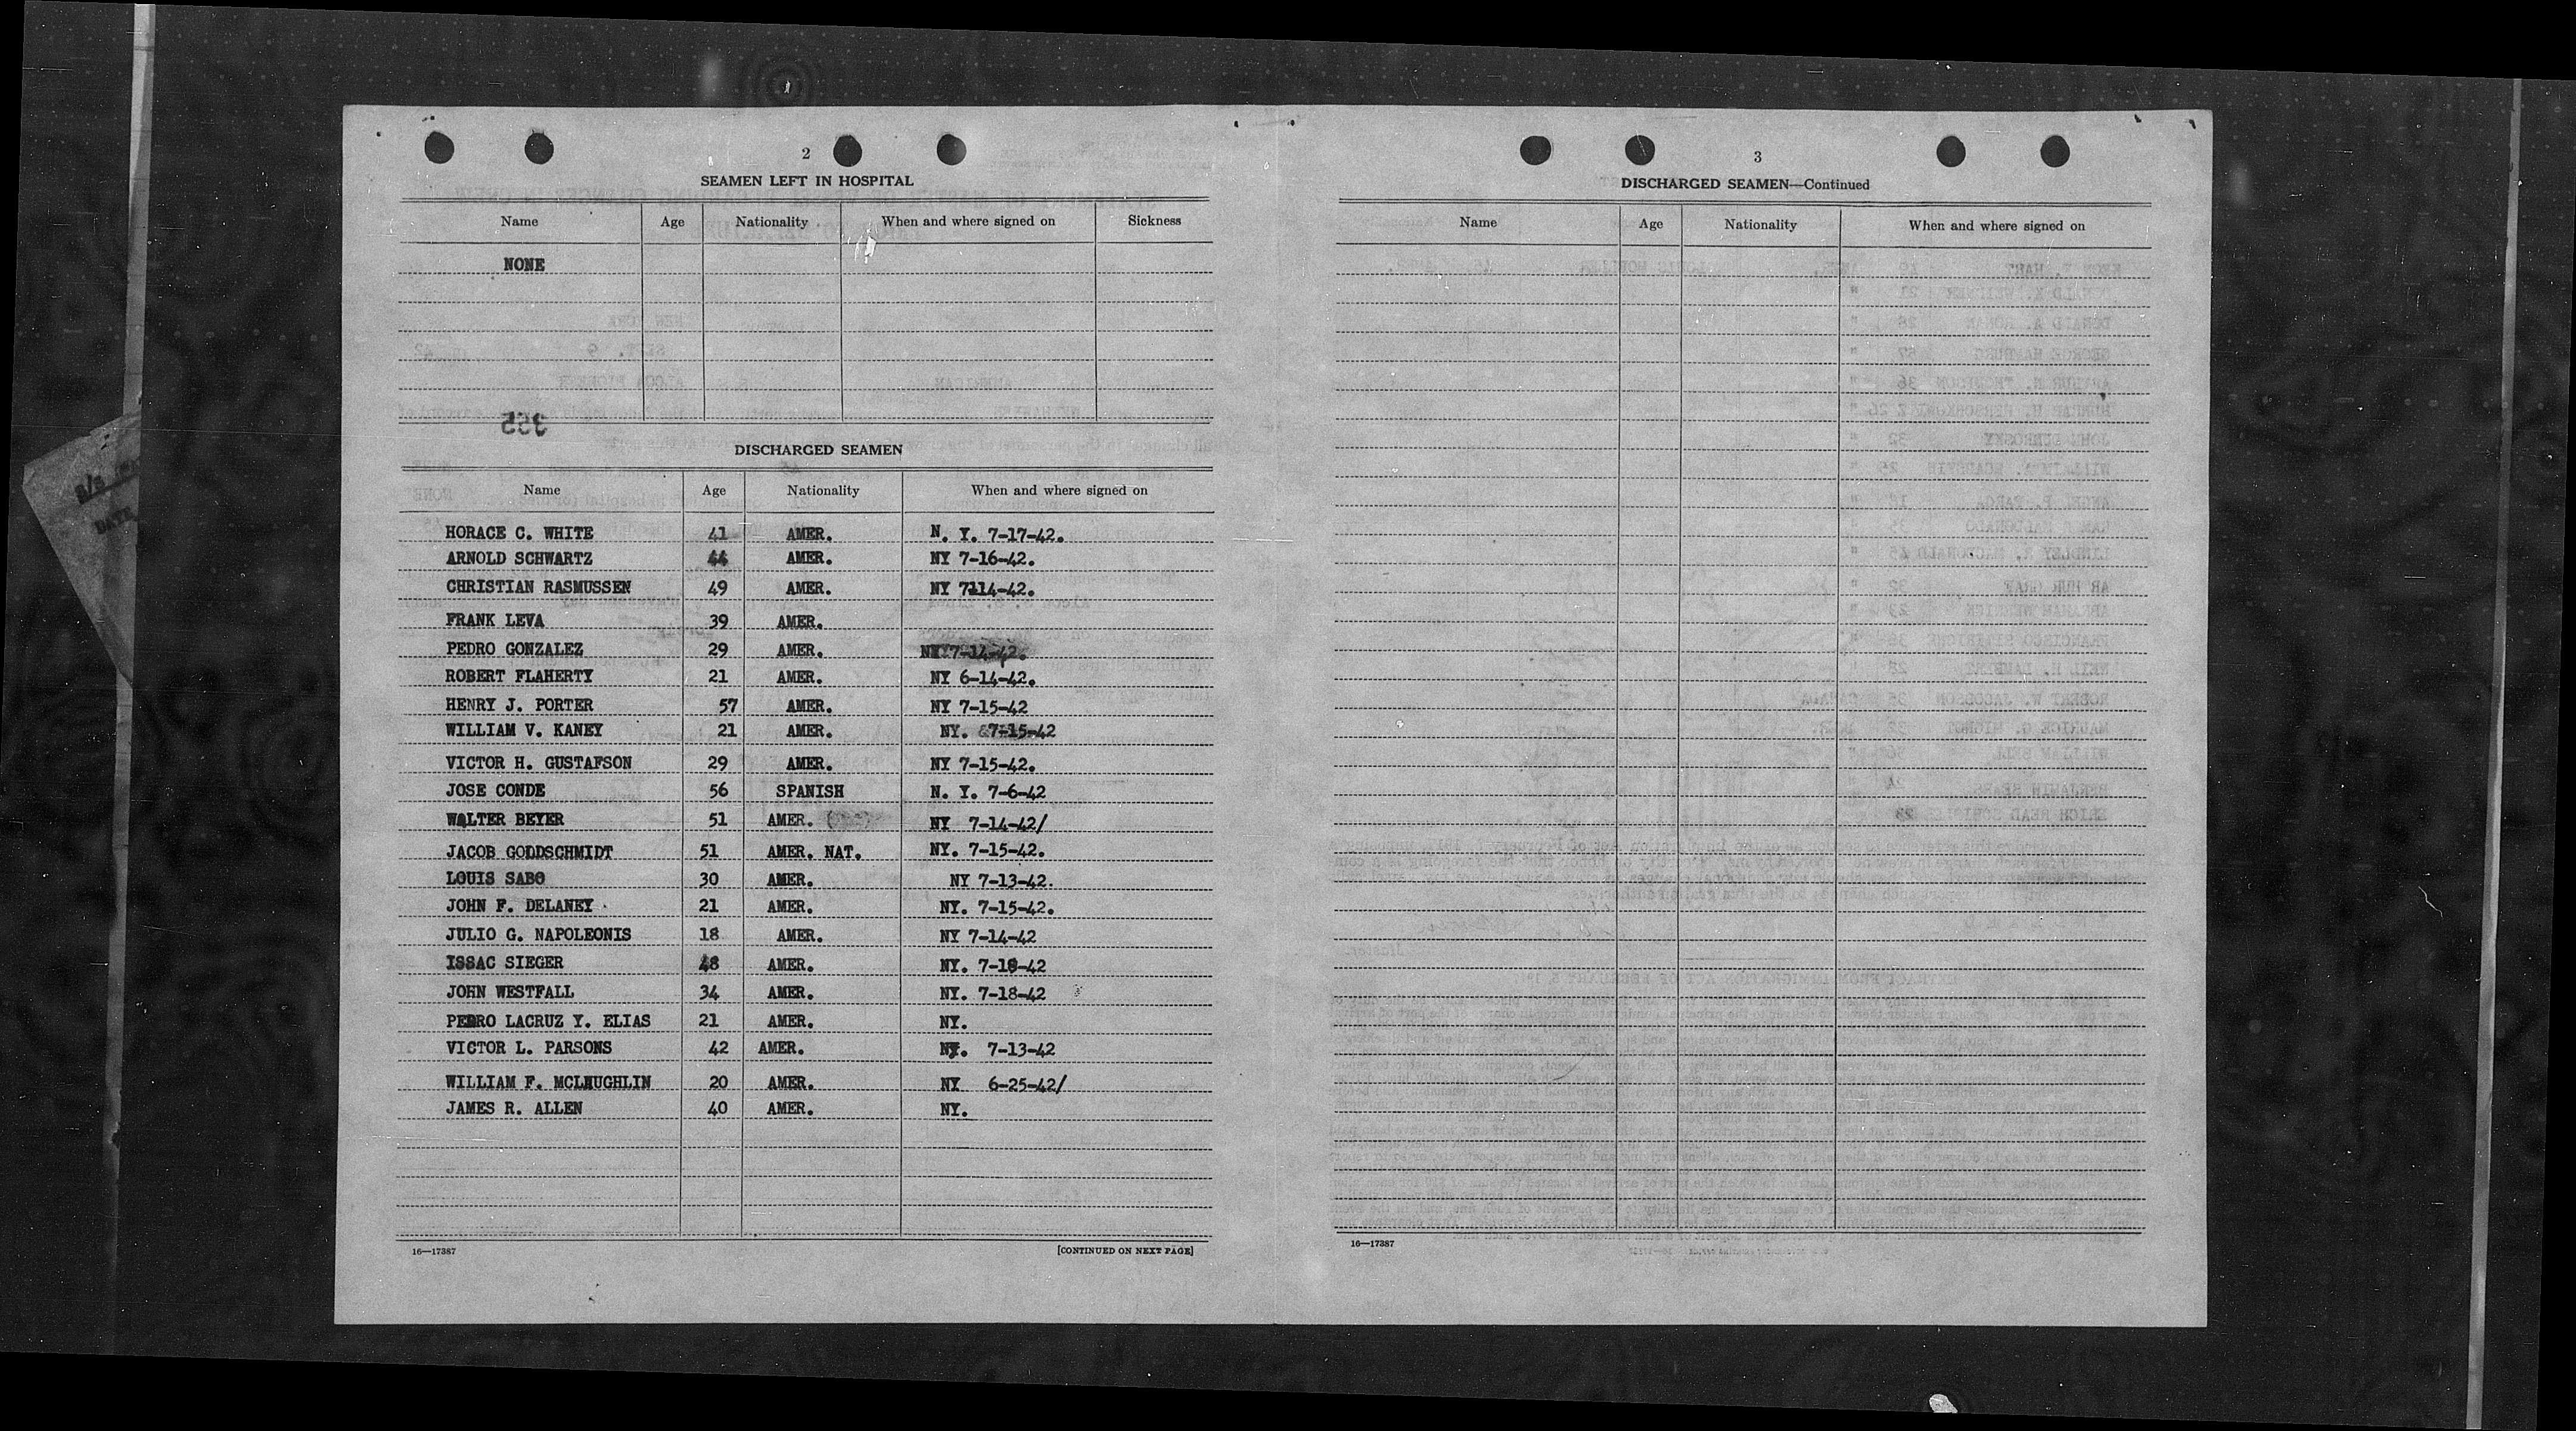 2
SEAMEN LEFT IN HOSPITAL
Name Age Nationality When and where signed on Sickness
NONE
355
DISCHARGED SEAMEN
Name Age Nationality When and where signed on
HORACE C. WHITE 41 AMER. N. Y. 7-17-42.
ARNOLD SCHWARTZ 44 AMER. NY 7-16-42.
CHRISTIAN RASMUSSEN 49 AMER. NY 7114-42.
FRANK LEVA 39 AMER.
PEDRO GONZALEZ 29 AMER. NY 7-14-42.
ROBERT FLAHERTY 21 AMER. NY 6-14-42.
HENRY J. PORTER 57 AMER. NY 7-15-42
WILLIAM V. KANEY 21 AMER. NY. 7-15-42
VICTOR H. GUSTAFSON 29 AMER. NY 7-15-42.
JOSE CONDE 56 SPANISH N. Y. 7-6-42
WALTER BEYER 51 AMER. NY 7-14-42/
JACOB GODDSCHMIDT 51 AMER. NAT. NY. 7-15-42.
LOUIS SABO 30 AMER. NY 7-13-42.
JOHN F. DELANEY 21 AMER. NY. 7-15-42.
JULIO G. NAPOLEONIS 18 AMER. NY 7-14-42
ISSAC SIEGER 48 AMER. NY. 7-18-42
JOHN WESTFALL 34 AMER. NY. 7-18-42
PEDRO LACRUZ Y. ELIAS 21 AMER. NY.
VICTOR L. PARSONS 42 AMER. NY. 7-13-42
WILLIAM F. MCLAUGHLIN 20 AMER. NY 6-25-42/
JAMES R. ALLEN 40 AMER. NY.
16—17387 [CONTINUED ON NEXT PAGE]
3
DISCHARGED SEAMEN—Continued
Name Age Nationality When and where signed on
16—17387
S/S
DATE